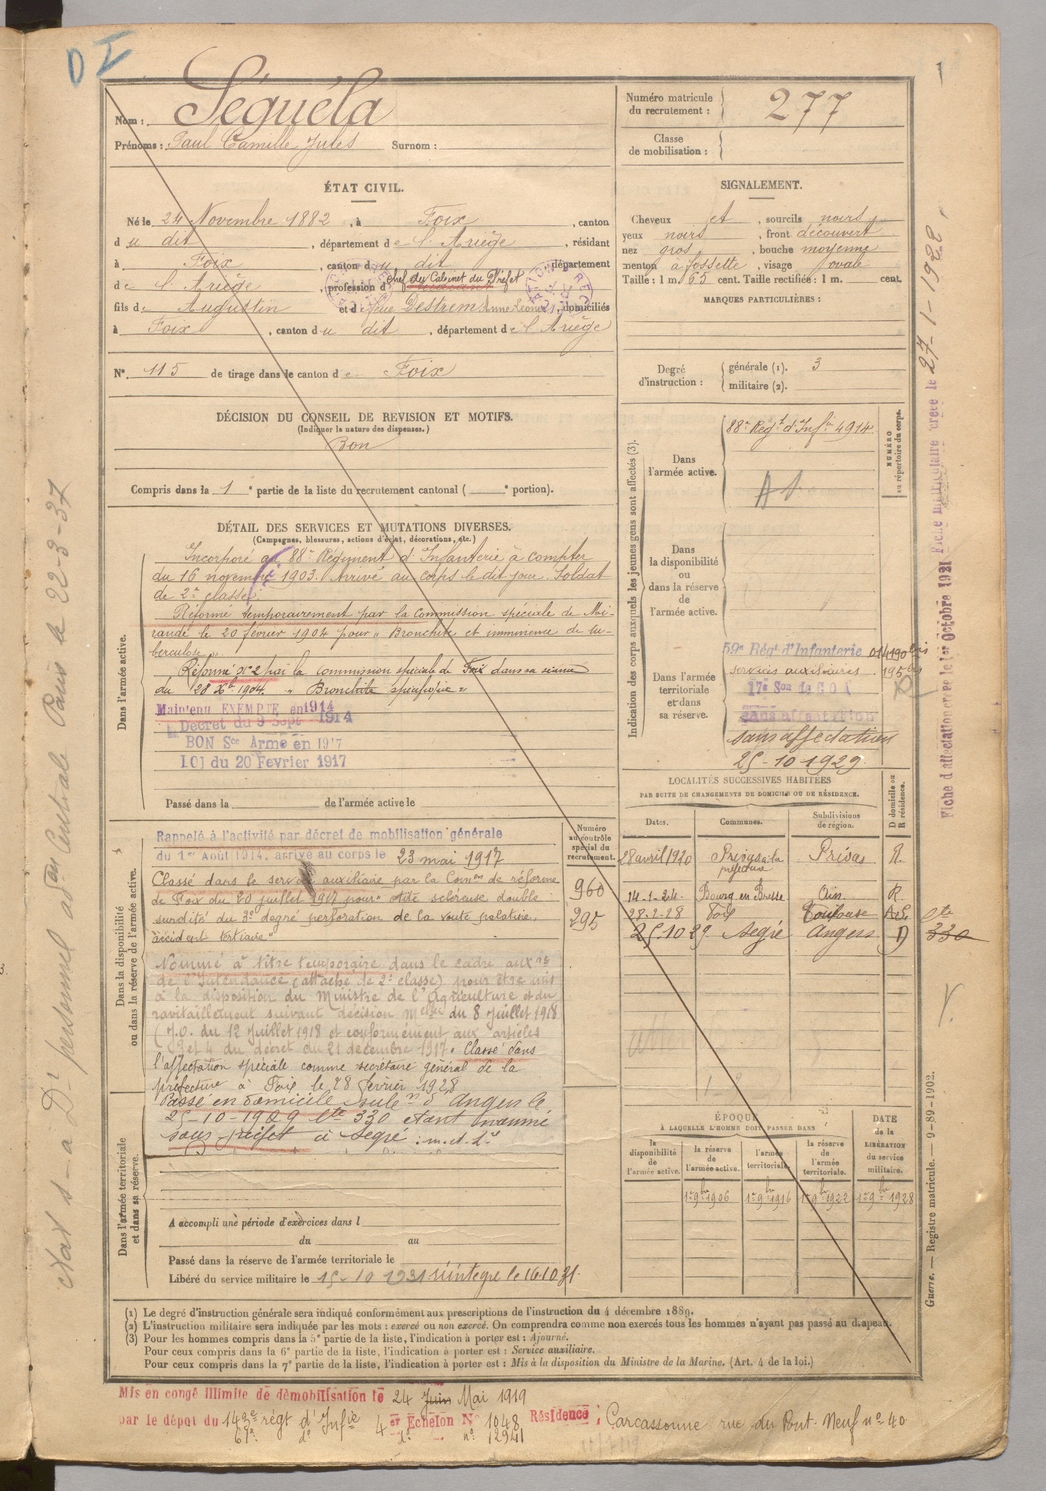 D I
1
Nom : Séguéla
Prénoms : Paul Camille Jules Surnom :
Numéro matricule du recrutement : 277
Classe de mobilisation :
ÉTAT CIVIL.
Né le 24 Novembre 1882, à Foix, canton
du dit, département de l'Ariège, résidant
à Foix, canton du dit département
de l'Ariège, profession de chef du Cabinet du Préfet
fils de Augustin et de Destrem Anne domiciliés
à Foix, canton du dit, département de l'Ariège
N° 115 de tirage dans le canton de Foix
SIGNALEMENT.
Cheveux et, sourcils noirs
yeux noirs, front découvert
nez gros, bouche moyenne
menton à fossette, visage ovale
Taille : 1 m. 65 cent. Taille rectifiée : 1 m. cent.
MARQUES PARTICULIÈRES :
Degré d'instruction : générale (1). 3
militaire (2).
DÉCISION DU CONSEIL DE REVISION ET MOTIFS.
(Indiquer la nature des dispenses.)
Bon
Compris dans la 1e partie de la liste du recrutement cantonal ( e portion).
DÉTAIL DES SERVICES ET MUTATIONS DIVERSES.
(Campagnes, blessures, actions d'éclat, décorations, etc.)
Dans l'armée active.
Incorporé au 88e Régiment d'Infanterie à compter
du 16 novembre 1903. Arrivé au corps le dit jour. Soldat
de 2e classe.
Réformé temporairement par la Commission spéciale de Mi-
rande le 20 février 1904 pour "Bronchite et imminence de tu-
berculose".
Réformé n° 2 par la commission spéciale de Foix dans sa séance
du 28 Xbre 1904. "Bronchite spécifique"
Maintenu EXEMPTE en 1914
Décret du 9 Sept 1914
BON Sce Armé en 1917
LOI du 20 Fevrier 1917
Passé dans la de l'armée active le
Indication des corps auxquels les jeunes gens sont affectés (3).
NUMÉRO au répertoire du corps.
Dans l'armée active.
88e Régt d'Infie 4914
Dans la disponibilité ou dans la réserve de l'armée active.
Dans l'armée territoriale et dans sa réserve.
59e Régt d'Infanterie
services auxiliaires
17e Son de C O A
sans affectation
sans affectation
25-10-1929
LOCALITÉS SUCCESSIVES HABITÉES
PAR SUITE DE CHANGEMENTS DE DOMICILE OU DE RÉSIDENCE.
Dates. Communes. Subdivisions de région. D domicile ou R résidence.
28 avril 1920 Privas à la préfecture Privas R.
14-1-24 Bourg en Bresse Ain R
28-2-28 Foix Toulouse
25.10.29 Segré Angers D
lte 330
Dans la disponibilité ou dans la réserve de l'armée active.
Numéro au contrôle spécial du recrutement.
960
295
Rappelé à l'activité par décret de mobilisation générale
du 1er Août 1914, arrivé au corps le 23 mai 1917
Classé dans le service auxiliaire par la Comon de réforme
de Foix du 20 juillet 1917 pour otite scléreuse double
surdité du 3e degré perforation de la voute palatine,
accident tertiaire"
Nommé à titre temporaire dans le cadre auxre
de l'Intendance (attaché de 2e classe) pour être mis
à la disposition du Ministre de l'Agriculture et du
ravitaillement suivant décision Melle du 8 juillet 1918
(J.O. du 12 juillet 1918 et conformément aux articles
et 4 du décret du 21 décembre 1917. Classé dans
l'affectation spéciale comme secrétaire général de la
préfecture à Foix le 28 février 1928
Passé en domicile subon d'Angers le
25-10-1929 lte 330 étant nommé
sous préfet à Segré
Dans l'armée territoriale et dans sa réserve.
A accompli une période d'exercices dans l
du au
Passé dans la réserve de l'armée territoriale le
Libéré du service militaire le 15-10 1931 réintegré le 16.10.31
ÉPOQUE
À LAQUELLE L'HOMME DOIT PASSER DANS
la disponibilité de l'armée active. la réserve de l'armée active. l'armée territoriale. la réserve de l'armée territoriale.
DATE de la LIBÉRATION du service militaire.
1er 9bre 1906 1er 9bre 1916 1er 9bre 1922 1er 9bre 1928
(1) Le degré d'instruction générale sera indiqué conformément aux prescriptions de l'instruction du 4 décembre 1889.
(2) L'instruction militaire sera indiquée par les mots : exercé ou non exercé. On comprendra comme non exercés tous les hommes n'ayant pas passé au drapeau.
(3) Pour les hommes compris dans la 5e partie de la liste, l'indication à porter est : Ajourné.
Pour ceux compris dans la 6e partie de la liste, l'indication à porter est : Service auxiliaire.
Pour ceux compris dans la 7e partie de la liste, l'indication à porter est : Mis à la disposition du Ministre de la Marine. (Art. 4 de la loi.)
Mis en congé illimité de démobilisation le 24 Juin Mai 1919
par le dépot du 143e régt d'Infie 4er Echelon N° 1048 Résidence : Carcassonne rue du Pont-Neuf n° 40
67e d° d° n° 12941
Guerre. — Registre matricule. — 9-89-1902.
Fiche d'affectation créée le 1er Octobre 1921 Fiche créée le 27-1-1928.
personnel Centrale Paris le 22-3-37